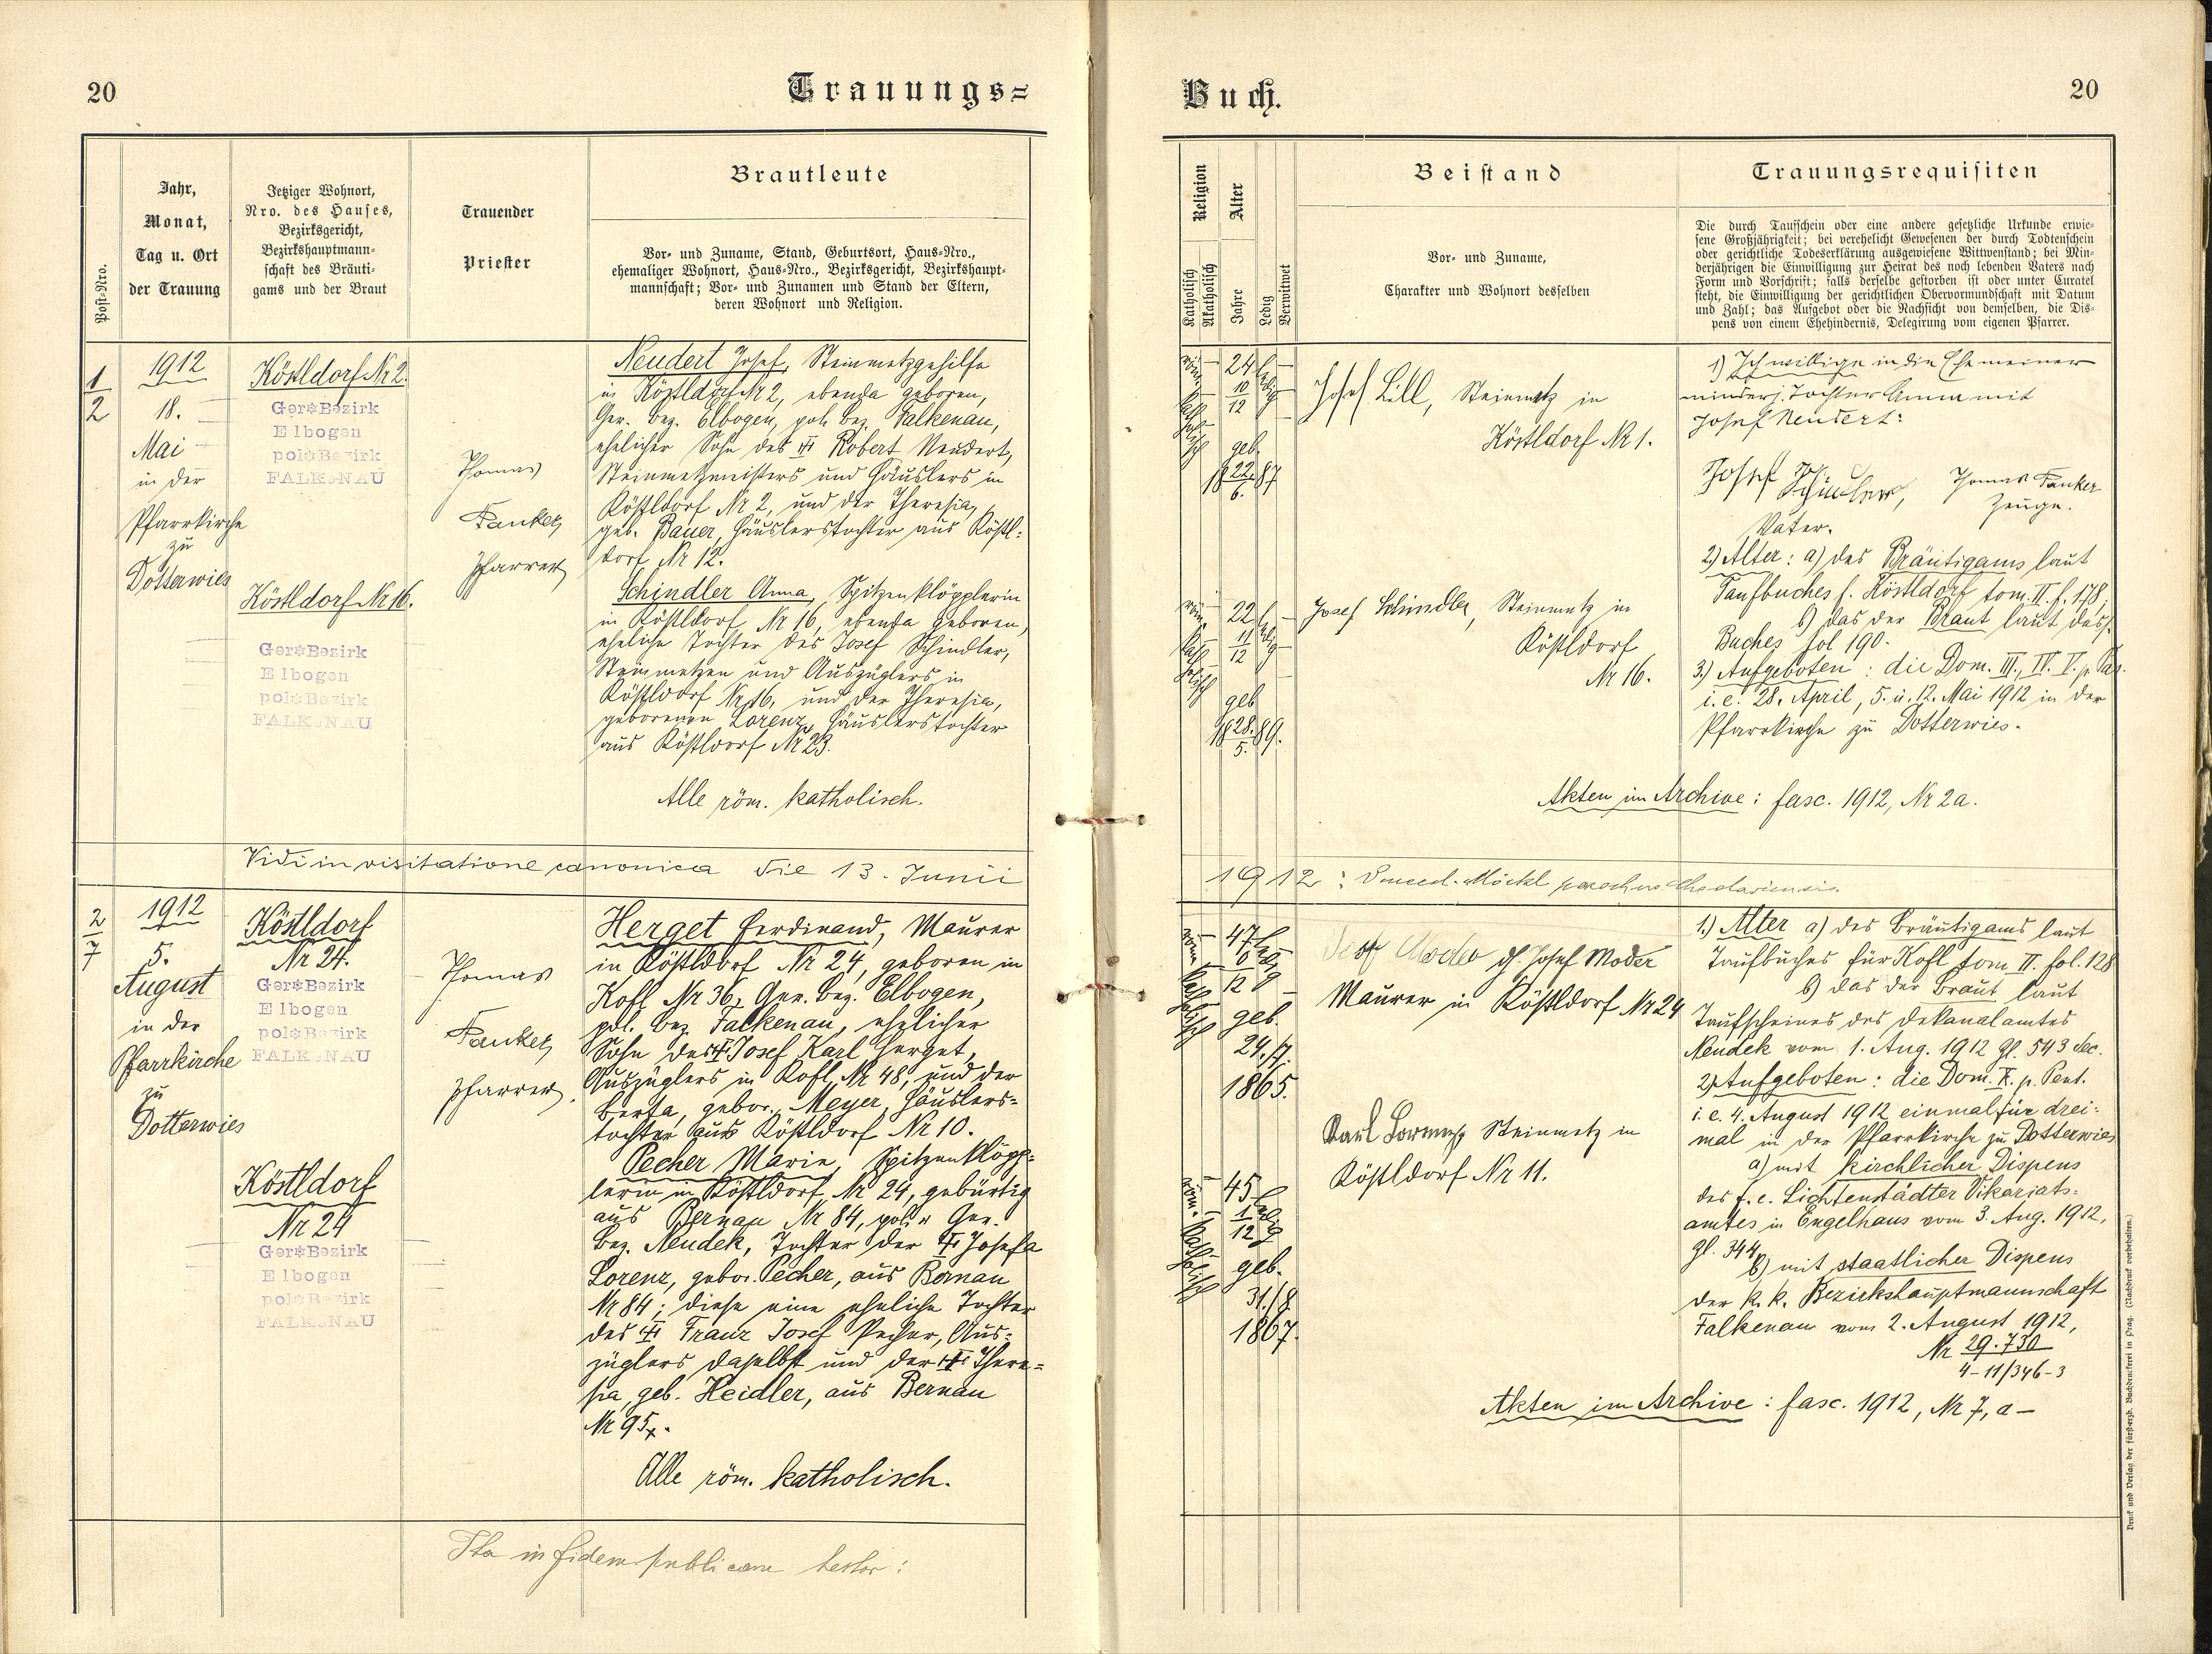 20
Trauungs=
Post-Nro.
Jahr,
Monat,
Tag u. Ort
der Trauung
Jetziger Wohnort,
Nro. des Hauses,
Bezirksgericht,
Bezirkshauptmann-
schaft des Bräuti-
gams und der Braut
Trauender
Priester
Brautleute
Vor- und Zuname, Stand, Geburtsort, Haus-Nro.,
ehemaliger Wohnort, Haus-Nro., Bezirksgericht, Bezirkshaupt-
mannschaft; Vor- und Zunamen und Stand der Eltern,
deren Wohnort und Religion.
1
2
1912
18.
Mai
in der
Pfarrkirche
zu
Dotterwies
Köstldorf Nr 2.
Ger. Bezirk
Elbogen
pol. Bezirk
FALKENAU
Köstldorf Nr 16.
Ger. Bezirk
Elbogen
pol. Bezirk
FALKENAU
Thomas
Fanker,
Pfarrer
Neudert Josef, Steinmetzgehilfe
in Köstldorf Nr 2, ebenda geboren,
Ger. bez. Elbogen, pol. bez. Falkenau,
ehelicher Sohn des Robert Neudert,
Steinmetzmeisters und Häuslers in
Köstldorf Nr 2, und der Theresia,
geb. Bauer, Häuslerstochter aus Köstl-
dorf Nr 12.
Schindler Anna, Spitzenklöpplerin
in Köstldorf Nr 16, ebenda geboren,
eheliche Tochter des Josef Schindler,
Steinmetzen und Auszüglers in
Köstldorf Nr 16, und der Theresia,
geborenen Lorenz, Häuslerstochter
aus Köstldorf Nr 23.
Alle röm. katholisch.
Vidi in visitatione canonica die 13. Junii
2
7
1912
5.
August
in der
Pfarrkirche
zu
Dotterwies
Köstldorf
Nr 24.
Ger. Bezirk
Elbogen
pol. Bezirk
FALKENAU
Köstldorf
Nr 24
Ger. Bezirk
Elbogen
pol. Bezirk
FALKENAU
Thomas
Fanker,
Pfarrer.
Herget Ferdinand, Maurer
in Köstldorf Nr 24, geboren in
Kofl Nr 36, Ger. bez. Elbogen,
pol. bez. Falkenau, ehelicher
Sohn des Josef Karl Herget,
Auszüglers in Kofl Nr 48, und der
Berta, gebor. Meyer, Häuslers=
tochter aus Köstldorf Nr 10.
Pecher Marie, Spitzenklöpp=
lerin in Köstldorf Nr 24, gebürtig
aus Bernau Nr 84, pol. u. Ger.
bez. Neudek, Tochter der Josefa
Lorenz, gebor. Pecher, aus Bernau
Nr 84; diese eine eheliche Tochter
des Franz Josef Pecher, Aus=
züglers daselbst und der There=
sia, geb. Heidler, aus Bernau
Nr 95.
Alle röm. katholisch.
Ita in fidem publicam testor:
Buch.
20
Religion
Katholisch
Akatholisch
Alter
Jahre
Ledig
Verwitwet
Beistand
Vor- und Zuname,
Charakter und Wohnort desselben
Trauungsrequisiten
Die durch Taufschein oder eine andere gesetzliche Urkunde erwie-
sene Großjährigkeit; bei verehelicht Gewesenen der durch Todtenschein
oder gerichtliche Todeserklärung ausgewiesene Wittwenstand; bei Min-
derjährigen die Einwilligung zur Heirat des noch lebenden Vaters nach
Form und Vorschrift; falls derselbe gestorben ist oder unter Curatel
steht, die Einwilligung der gerichtlichen Obervormundschaft mit Datum
und Zahl; das Aufgebot oder die Nachsicht von demselben, die Dis-
pens von einem Ehehindernis, Delegirung vom eigenen Pfarrer.
röm. katholisch
24 10/12
ledig
geb.
18 22./6. 87
Josef Lill, Steinmetz in
Köstldorf Nr 1.
röm. katholisch
22 11/12
ledig
geb
18 28./5. 89.
Josef Schindler, Steinmetz in
Köstldorf
Nr 16.
1) Ich willige in die Ehe meiner
minderj. Tochter Anna mit
Josef Neudert:
Josef Schindler,
Vater.
Thomas Fanker
Zeuge.
2) Alter: a) des Bräutigams laut
Taufbuches f. Köstldorf tom. II. f. 178,
b) das der Braut laut dess.
Buches fol 190.
3.) Aufgeboten: die Dom. III., IV. V. p. Pas.
i. e. 28. April, 5. u. 12. Mai 1912 in der
Pfarrkirche zu Dotterwies.
Akten im Archive: fasc. 1912, Nr 2a.
1912: Möckl parochus
röm. katholisch
47
ledig
geb.
24./7.
1865.
Josef Moder
Maurer in Köstldorf Nr 24
Karl Lorenz, Steinmetz in
Köstldorf Nr 11.
röm. katholisch
45 11/12
ledig
geb.
31./8.
1867.
1.) Alter a) des Bräutigams laut
Taufbuches für Kofl tom. II. fol. 128
b) das der Braut laut
Taufscheines des Dekanalamtes
Neudek vom 1. Aug. 1912 Zl. 543 Sec.
2) Aufgeboten: die Dom. X. p. Pent.
i. e. 4. August 1912 einmal für drei=
mal in der Pfarrkirche zu Dotterwies
a) mit kirchlicher Dispens
des f. e. Lichtenstädter Vikariats=
amtes in Engelhaus vom 3. Aug. 1912,
Zl. 344
b) mit staatlicher Dispens
der k. k. Bezirkshauptmannschaft
Falkenau vom 2. August 1912,
Nr 29.730
4-11/346-3
Akten im Archive: fasc. 1912, Nr 7, a -
Druck und Verlag der fürsterzb. Buchdruckerei in Prag. (Nachdruck vorbehalten.)